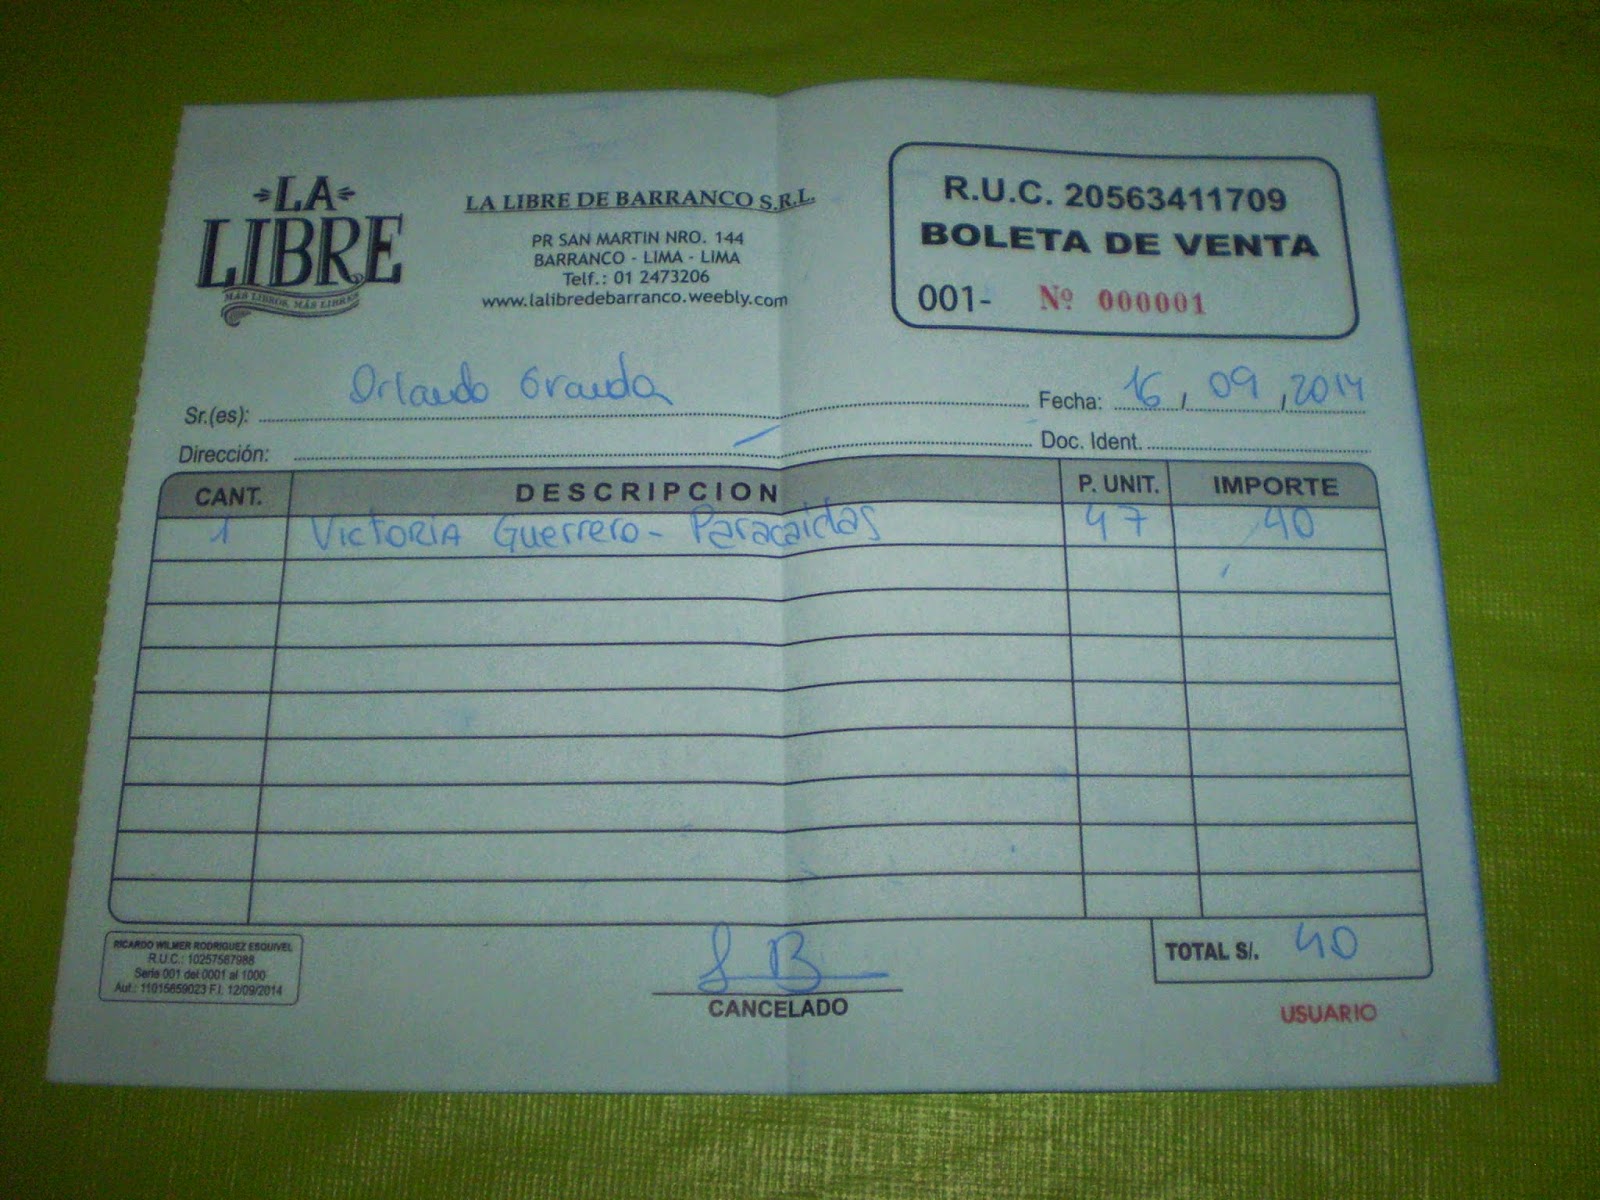 LA
LIBRE
MÁS LIBROS, MÁS LIBRES
LA LIBRE DE BARRANCO S.R.L.
PR SAN MARTIN NRO. 144
BARRANCO - LIMA - LIMA
Telf.: 01 2473206
www.lalibredebarranco.weebly.com
R.U.C. 20563411709
BOLETA DE VENTA
001- Nº 000001
Sr.(es): Orlando Granda Fecha: 16, 09, 2014
Dirección: Doc. Ident.
CANT. DESCRIPCION P. UNIT. IMPORTE
1 Victoria Guerrero - Paracaidas 47 40
RICARDO WILMER RODRIGUEZ ESQUIVEL
R.U.C.: 10257567988
Serie 001 del 0001 al 1000
Aut.: 11015659023 F.I. 12/09/2014
CANCELADO
TOTAL S/. 40
USUARIO